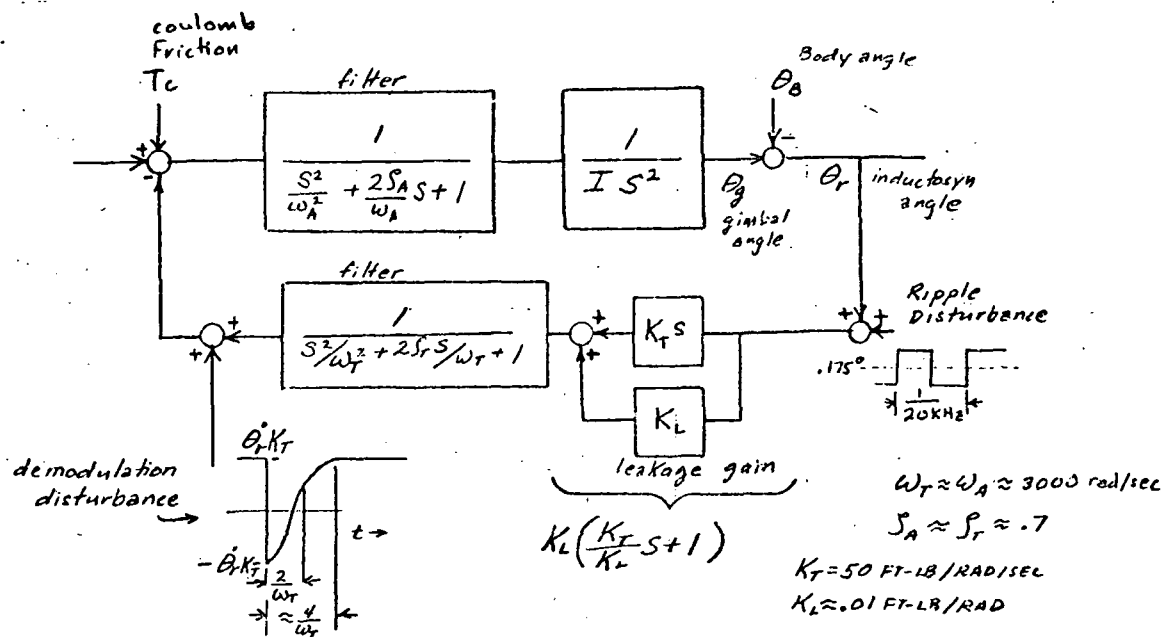 coulomb
Friction
Tc
filter
1
S²/ω_A² + 2ζ_A/ω_A S + 1
1
I S²
Body angle
θ_B
θ_g
gimbal
angle
θ_r inductosyn
angle
+
-
-
filter
1
S²/ω_T² + 2ζ_T S/ω_T + 1
+
+
+
+
K_T S
K_L
leakage gain
+
+
Ripple
Disturbance
.175°
1/20KHz
demodulation
disturbance
θ̇_r K_T
t →
- θ̇_r K_T
2/ω_T
≈ 4/ω_T
K_L (K_T/K_L S + 1)
ω_T ≈ ω_A ≈ 3000 rad/sec
ζ_A ≈ ζ_T ≈ .7
K_T = 50 FT-LB/RAD/SEC
K_L ≈ .01 FT-LB/RAD